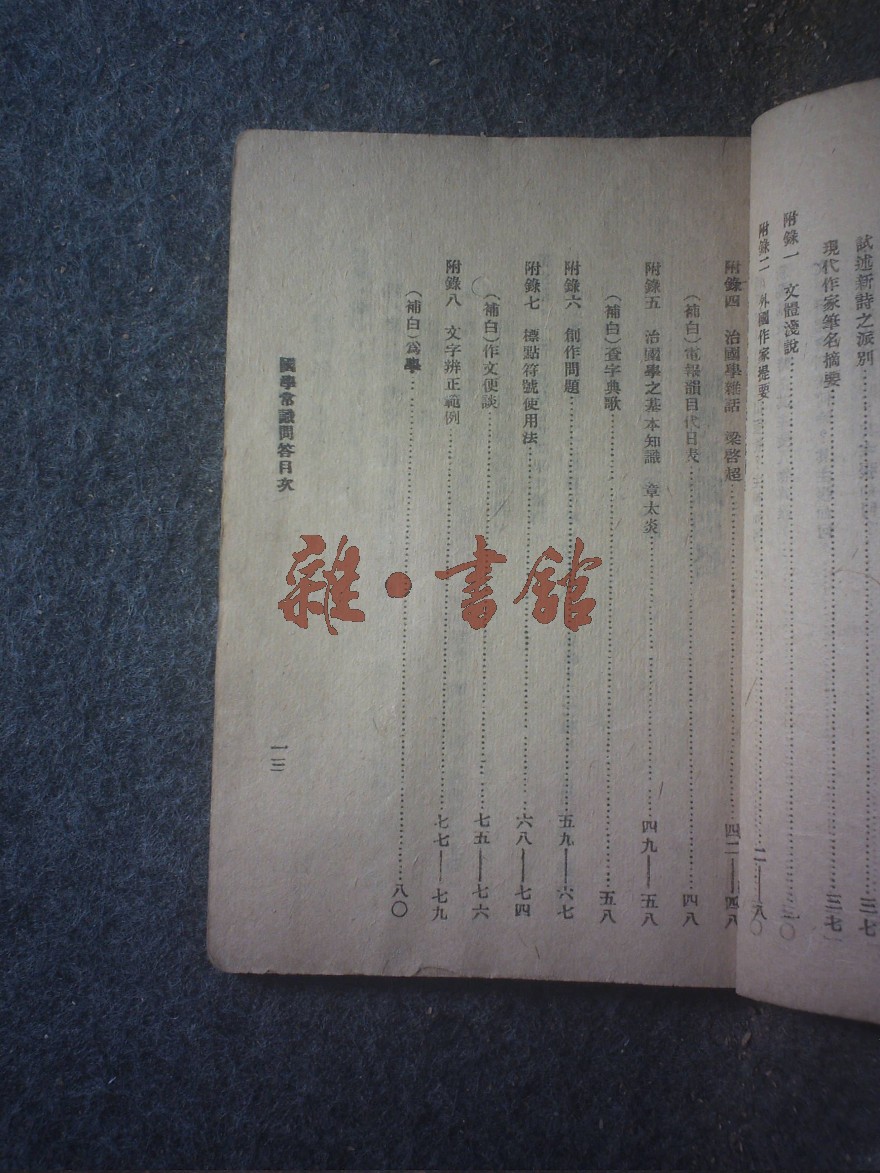 試述新詩之派別……三七
現代作家筆名摘要……三七
附錄一　文體淺說……
附錄二　外國作家提要……
附錄四　治國學雜話　梁啓超……四二——四八
（補白）電報韻目代日表……四八
附錄五　治國學之基本知識　章太炎……四九——五八
（補白）查字典歌……五八
附錄六　創作問題……五九——六七
附錄七　標點符號使用法……六八——七四
（補白）作文便談……七五——七六
附錄八　文字辨正範例……七七——七九
（補白）爲學……八〇
國學常識問答目次
一三
雜·書館